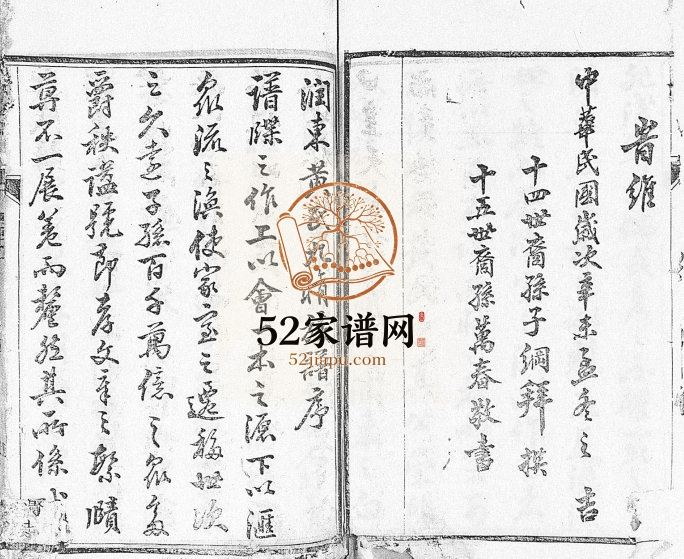 旹維
中華民國歲次辛未孟冬之 吉
十四世裔孫子綱拜 撰
十五世裔孫萬春敬書
潤東黃氏 譜序
譜牒之作上以會 本之源下以滙
眾流之渙使家室之遷移世次
之久遠子孫百千萬億之眾多
爵秩謚號節孝文章之繁賾
莫不一展卷而釐然其所係
52家谱网
52jiapu.com